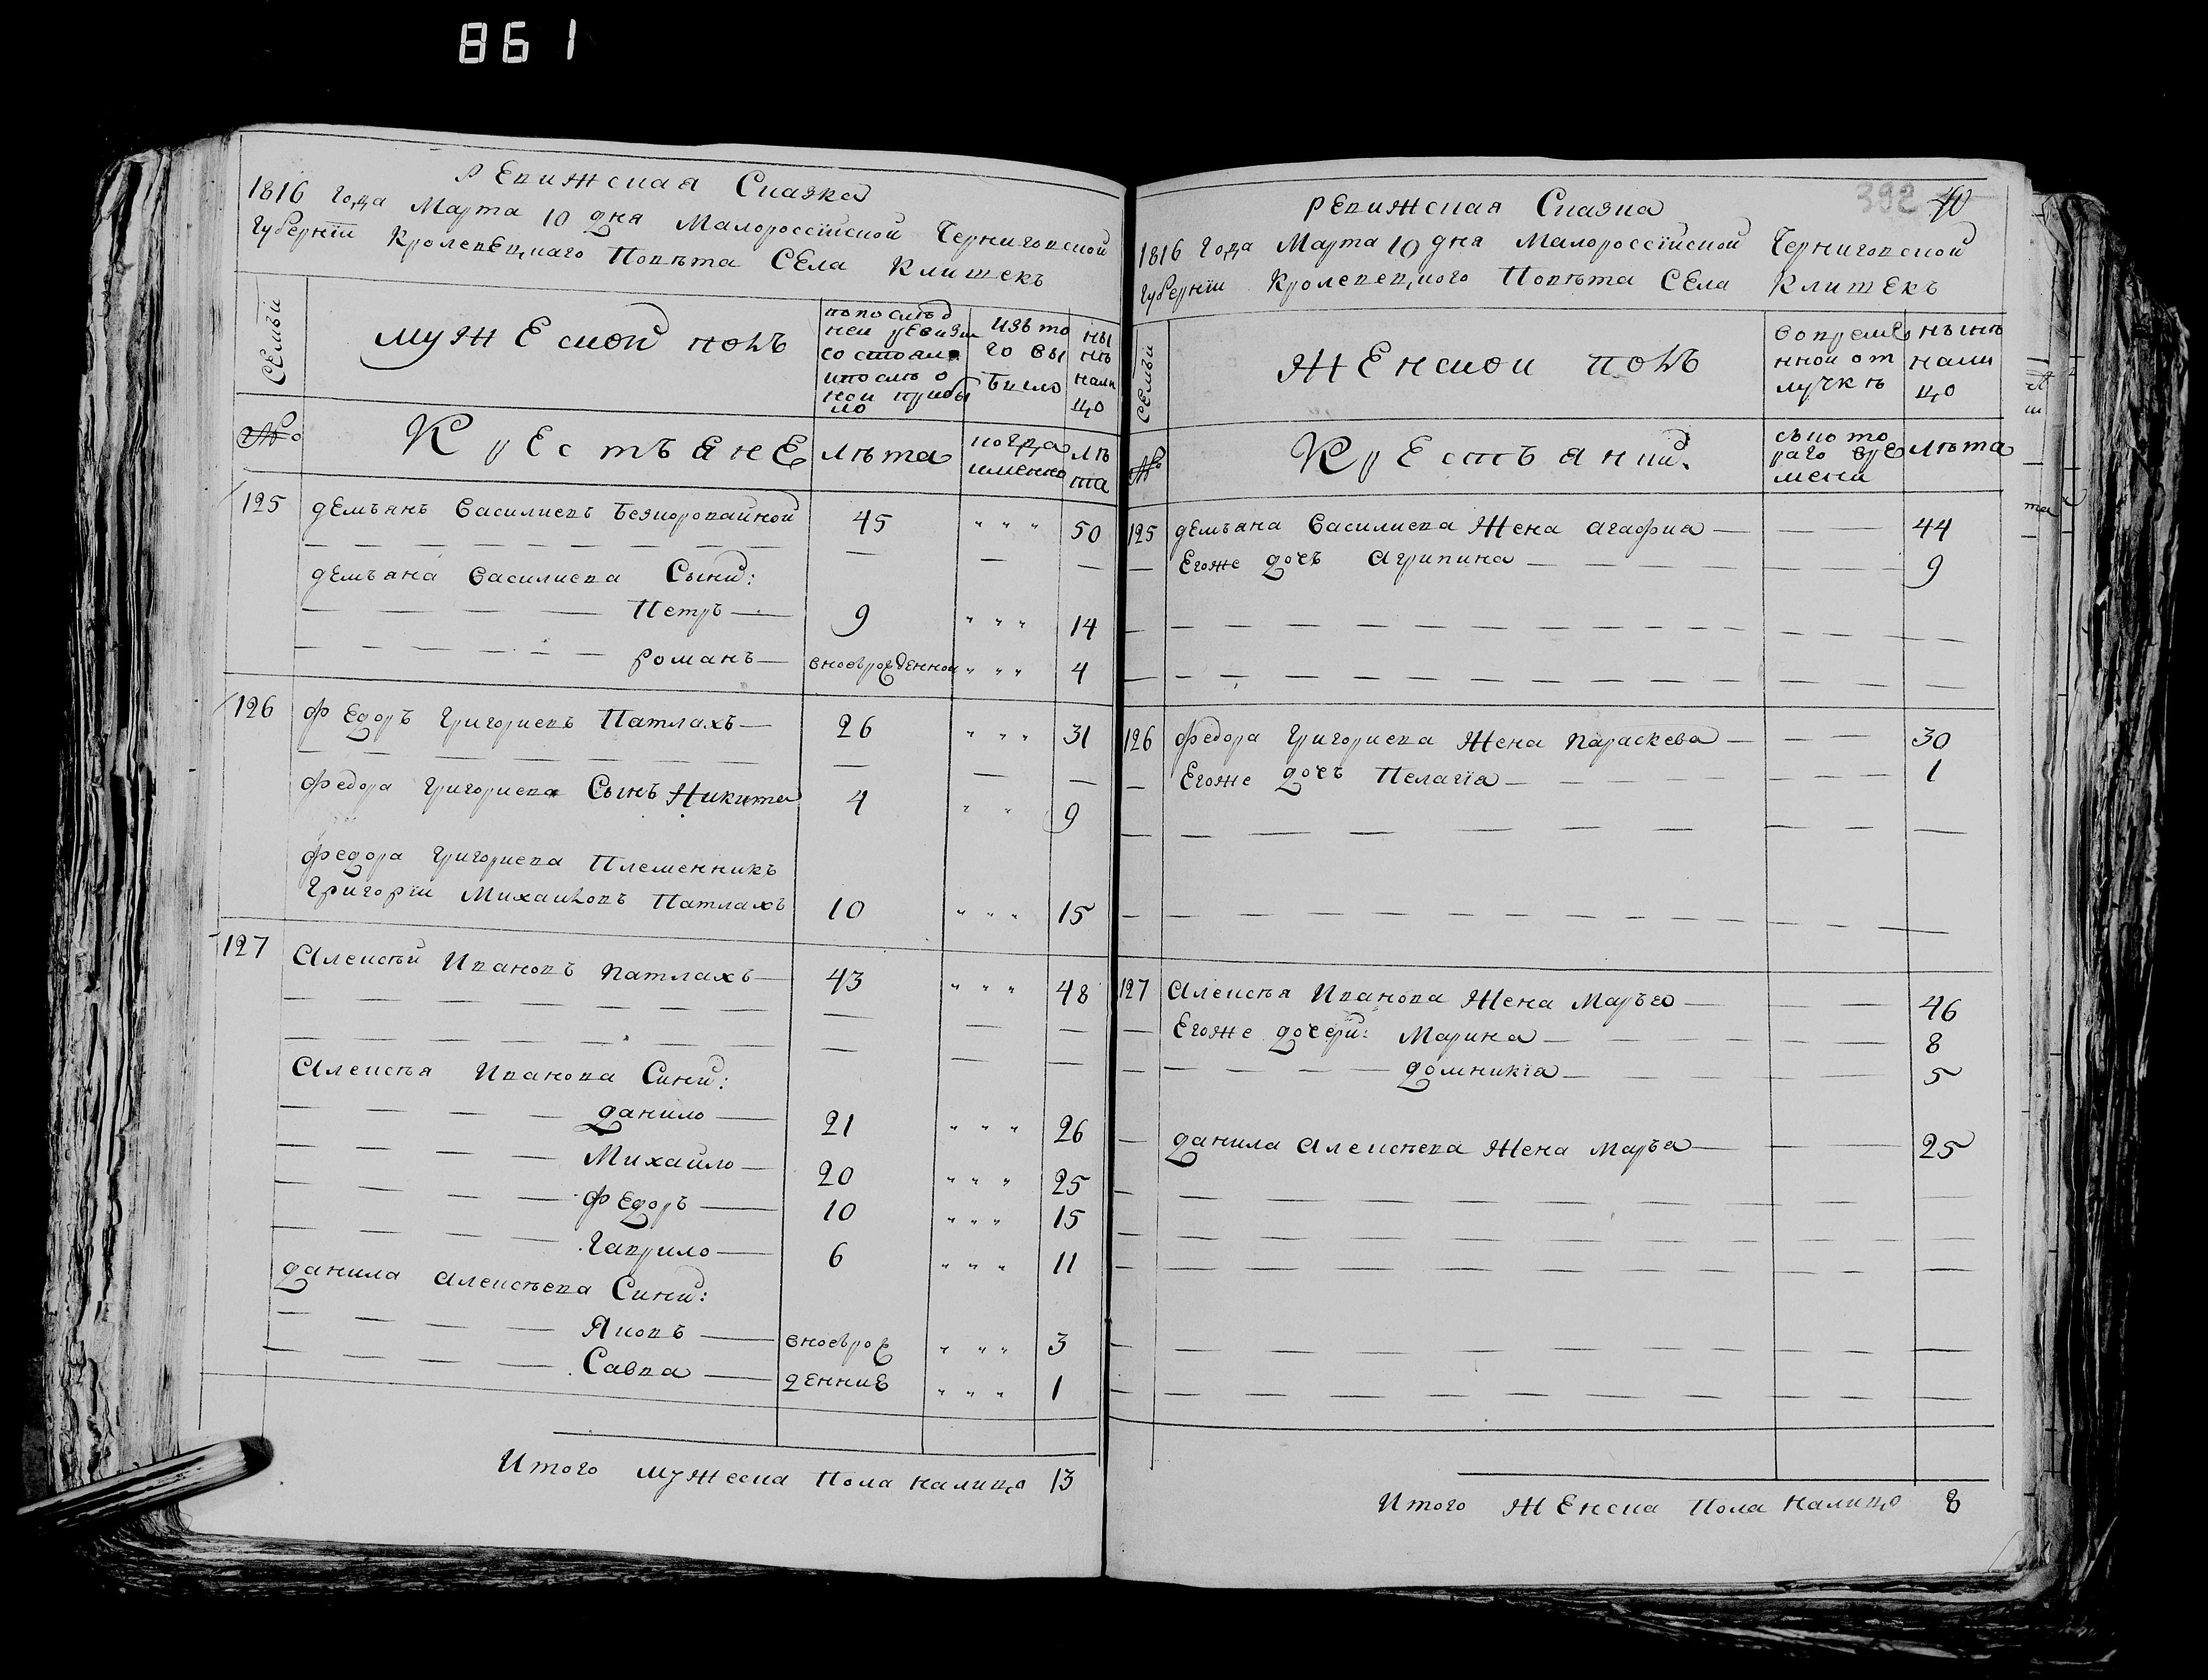 861
Ревижская Сказка
1816 года Марта 10 дня Малороссїйской Черниговской
Губернїи Кролевецкаго Повѣта Села Клишекъ
Семьи
Мужеской полъ
въпослѣд
неи ревизи
состояло
ипослѣ о
нои прибы
ло
изъ то
го вы
было
ны
нѣ
нали
цо
№
Крестьяне
лѣта
когда
именно
лѣ
та
125 демьянъ Василиевъ Безкоровайной 45 " " " 50
демьяна Василиева Сыни:
Петръ 9 " " " 14
романъ вновърожденной " " " 4
126 Федоръ Григориевъ Патлахъ 26 " " " 31
Федора Григориева Сынъ Никита 4 " " 9
Федора Григориева Племенникъ
Григорїи Михаиловъ Патлахъ 10 " " " 15
127 Алексѣй Ивановъ Патлахъ 43 " " " 48
Алексѣя Иванова Сини:
данило 21 " " " 26
Михаило 20 " " " 25
Федоръ 10 " " " 15
Гаврило 6 " " " 11
данила Алексѣева Сини:
Яковъ вновърож " " " 3
Савва денние " " " 1
Итого мужеска пола налицо 13
392 40
Ревижская Сказка
1816 года Марта 10 дня Малороссїйской Черниговской
Губернїи Кролевецкого Повѣта Села Клишекъ
Семьи
Женскои полъ
вовреме
ннои от
лучкѣ
нынѣ
нали
цо
№
Крестьянки
съкото
раго вре
мени
лѣта
125 демьяна Василиева Жена Агафиа 44
Егоже дочъ Агрипина 9
126 Федора Григориева Жена Параскева 30
Егоже дочъ Пелагїа 1
127 Алексѣя Иванова Жена Маръя 46
Егоже дочери: Марина 8
домникїа 5
данила Алексѣева Жена Маръа 25
Итого Женска пола налицо 8